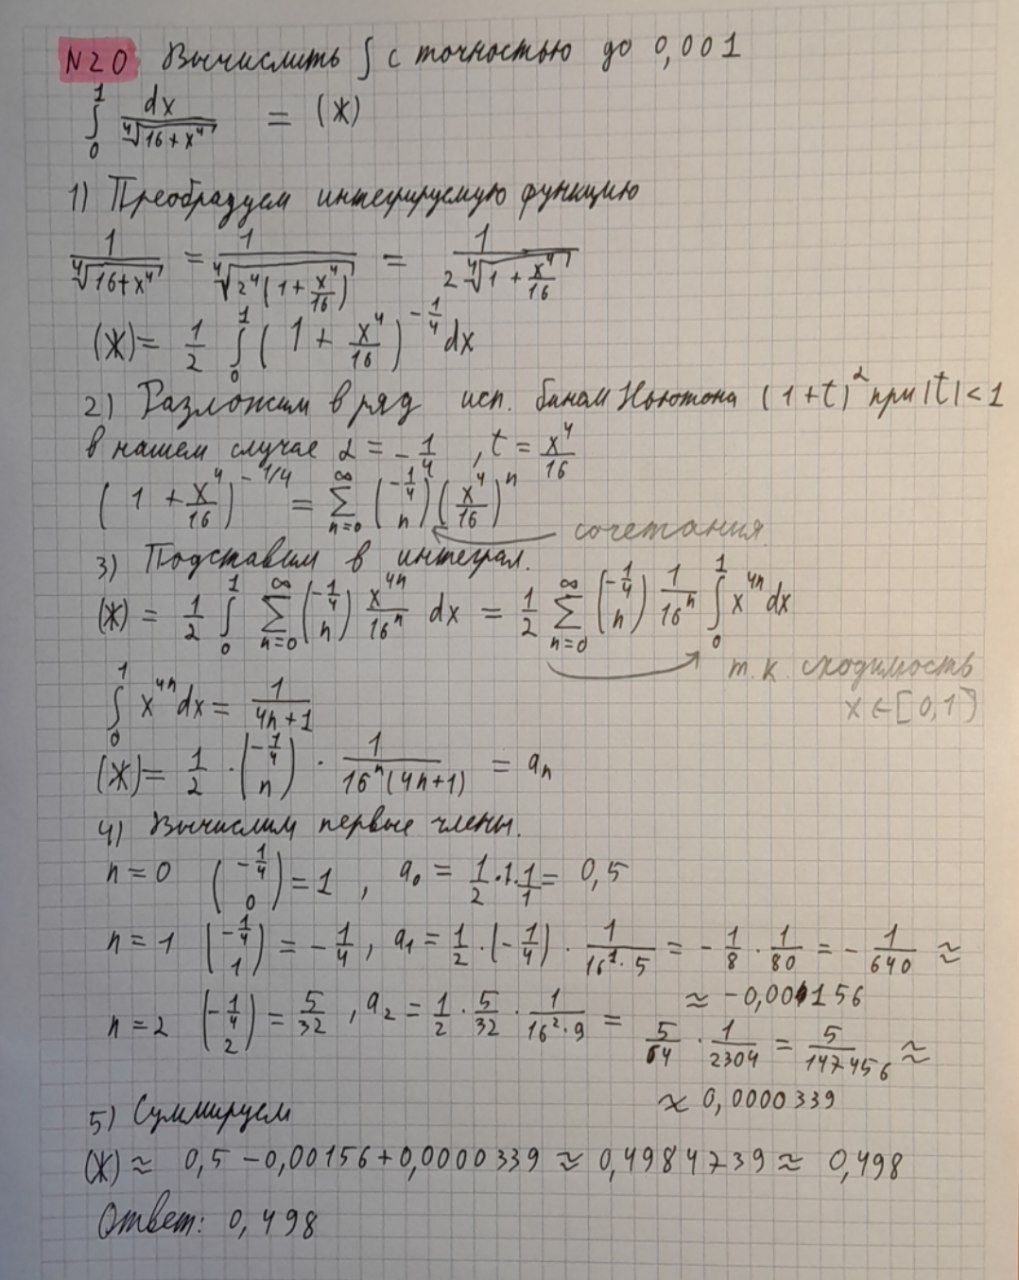 N20 Вычислить ∫ с точностью до 0,001
∫₀¹ dx / ⁴√(16+x⁴) = (Ж)
1) Преобразуем интегрируемую функцию
1/⁴√(16+x⁴) = 1/⁴√(2⁴(1+x⁴/16)) = 1/(2 ⁴√(1+x⁴/16))
(Ж) = 1/2 ∫₀¹ (1 + x⁴/16)^(-1/4) dx
2) Разложим в ряд исп. бином Ньютона (1+t)^α при |t|<1
в нашем случае α = -1/4, t = x⁴/16
(1 + x⁴/16)^(-1/4) = ∑_{n=0}^{∞} (-1/4 n) (x⁴/16)ⁿ
сочетания
3) Подставим в интеграл.
(Ж) = 1/2 ∫₀¹ ∑_{n=0}^{∞} (-1/4 n) x⁴ⁿ/16ⁿ dx = 1/2 ∑_{n=0}^{∞} (-1/4 n) 1/16ⁿ ∫₀¹ x⁴ⁿ dx
т.к. сходимость
x ∈ [0,1]
∫₀¹ x⁴ⁿ dx = 1/(4n+1)
(Ж) = 1/2 · (-1/4 n) · 1/(16ⁿ(4n+1)) = aₙ
4) Вычислим первые члены.
n=0 (-1/4 0) = 1, a₀ = 1/2 · 1 · 1/1 = 0,5
n=1 (-1/4 1) = -1/4, a₁ = 1/2 · (-1/4) · 1/(16¹·5) = -1/8 · 1/80 = -1/640 ≈
≈ -0,00156
n=2 (-1/4 2) = 5/32, a₂ = 1/2 · 5/32 · 1/(16²·9) = 5/64 · 1/2304 = 5/147456 ≈
≈ 0,0000339
5) Суммируем
(Ж) ≈ 0,5 - 0,00156 + 0,0000339 ≈ 0,4984739 ≈ 0,498
Ответ: 0,498